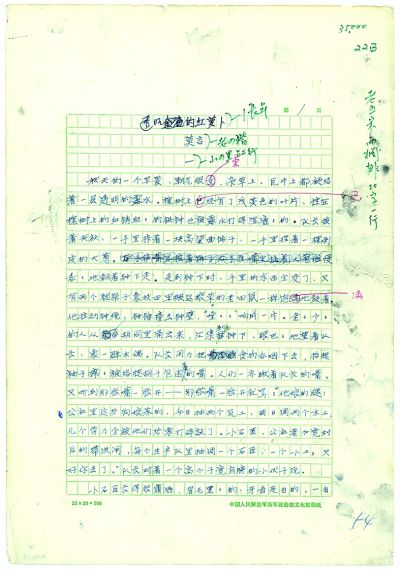 35,000
22日
第 1 页
透明的红萝卜
莫言
秋天的一个早晨，潮气很重，杂草上、瓦片上都凝结
着一层透明的露水。槐树上已经有了浅黄色的叶片，挂在
槐树上的红锈斑斑的铁钟也被露水打得湿漉漉的。队长披
着夹袄，一手里拤着一块高粱面饼子，一手里捏着一棵剥
皮的大葱，慢
吞吞地朝着钟下走。走到钟下时，手里的东西全没了，只
有两个腮帮子象秋田里搬运粮草的老田鼠一样饱满地鼓着
他拉动钟绳，钟锤撞击钟壁，响成一片。老老少少
的人从胡同里涌出来，汇集到钟下，眼巴巴地望着队
长，象一群木偶。队长用力把食物吞咽下去，抬起
袖子擦擦被络腮胡子包围着的嘴。人们一齐瞅着队长的嘴，
只听到那张嘴一张开——那张嘴一张开就骂：“他娘的腿！
公社里这些狗娘养的，今日抽两个瓦工，明日调两个木工
几个劳力全被他们给零打碎敲了。小石匠，公社要加宽村
后的滞洪闸，每个生产队里抽调一个石匠，一个小工，只
好你去了。”队长对着一个高个子宽肩膀的小伙子说。
小石匠长得很潇洒，眉毛黑黑的，牙齿是白的，一白
25×20=500
中国人民解放军